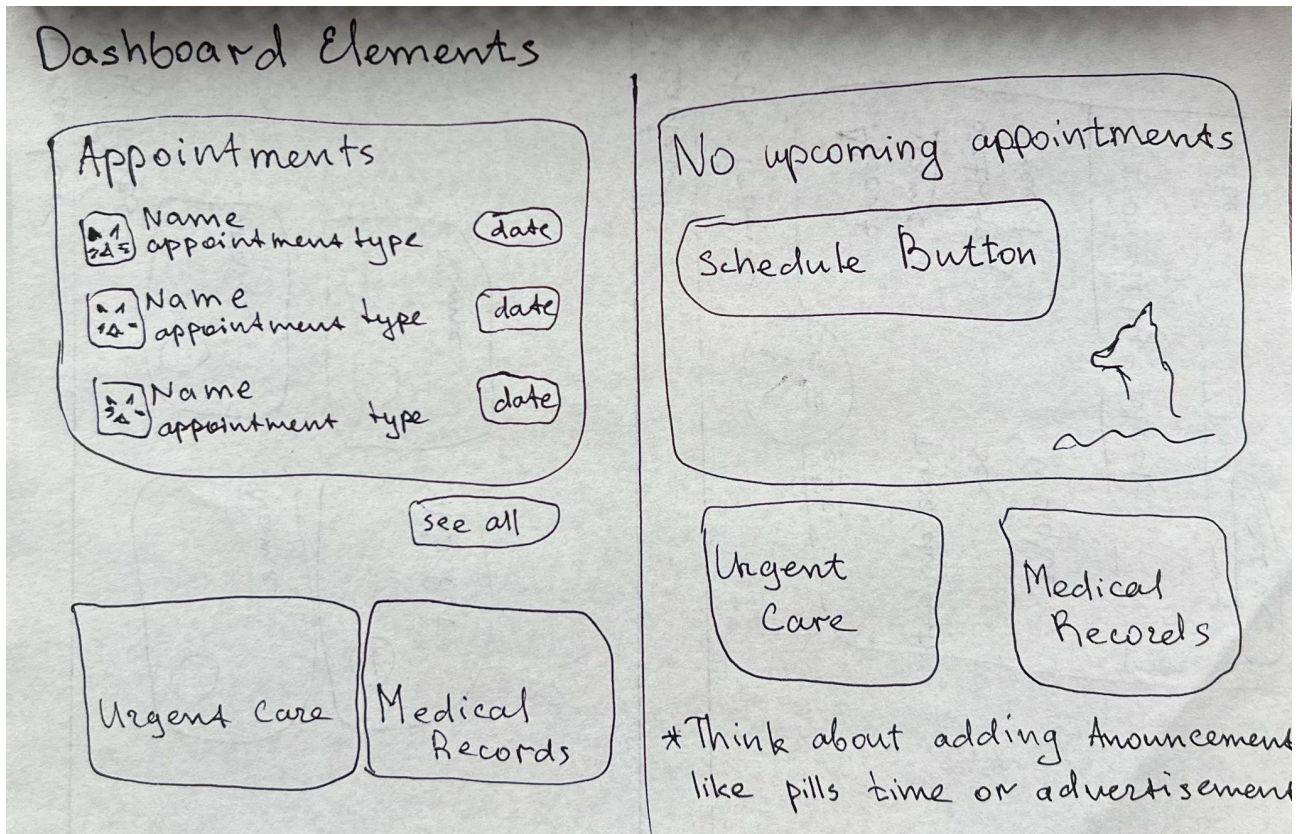 Dashboard Elements
Appointments
Name
appointment type
date
Name
appointment type
date
Name
appointment type
date
see all
Urgent Care
Medical
Records
No upcoming appointments
Schedule Button
Urgent
Care
Medical
Records
*Think about adding Anouncement
like pills time or advertisement